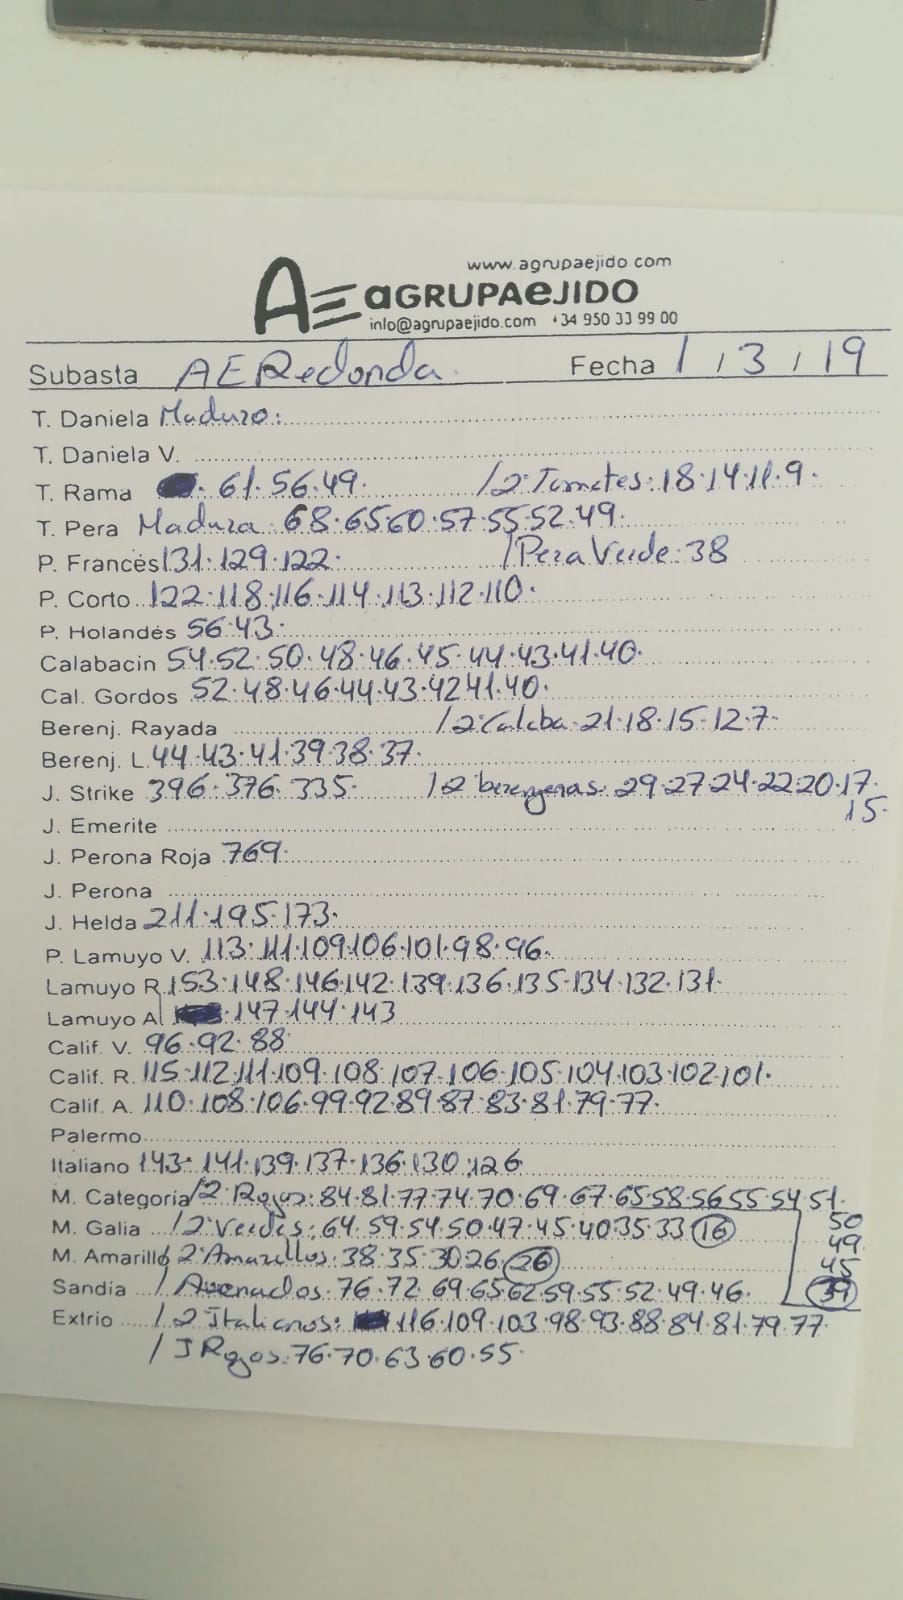 www.agrupaejido.com
AE aGRUPAeJIDO
info@agrupaejido.com +34 950 33 99 00
Subasta AE Redonda. Fecha 1 / 3 / 19
T. Daniela Maduro:
T. Daniela V.
T. Rama . 61.56.49. /2ª Tomates: 18.14.11.9.
T. Pera Madura. 68.65.60.57.55.52.49.
P. Francés 131.129.122. /Pera Verde: 38
P. Corto 122.118.116.114.113.112.110.
P. Holandés 56.43.
Calabacin 54.52.50.48.46.45.44.43.41.40.
Cal. Gordos 52.48.46.44.43.42.41.40.
Berenj. Rayada /2ª Calaba. 21.18.15.12.7.
Berenj. L 44.43.41.39.38.37.
J. Strike 396.376.335. /2ª berengenas. 29.27.24.22.20.17.
15.
J. Emerite
J. Perona Roja 769.
J. Perona
J. Helda 211.195.173.
P. Lamuyo V. 113.111.109.106.101.98.96.
Lamuyo R 153.148.146.142.139.136.135.134.132.131.
Lamuyo A . 147.144.143
Calif. V. 96.92.88
Calif. R. 115.112.111.109.108.107.106.105.104.103.102.101.
Calif. A. 110.108.106.99.92.89.87.83.81.79.77.
Palermo
Italiano 143.141.139.137.136.130.126
M. Categoría /2ª Rojos: 84.81.77.74.70.69.67.65.58.56.55.54.51.
50
M. Galia /2ª Verdes: 64.59.54.50.47.45.40.35.33 16
49
M. Amarillo 2ª Amarillos. 38.35.30.26. 26
45
Sandía / Asurados. 76.72.69.65.62.59.55.52.49.46.
39
Extrio /2ª Italianos: 116.109.103.98.93.88.84.81.79.77.
/ J Rojos. 76.70.63.60.55.